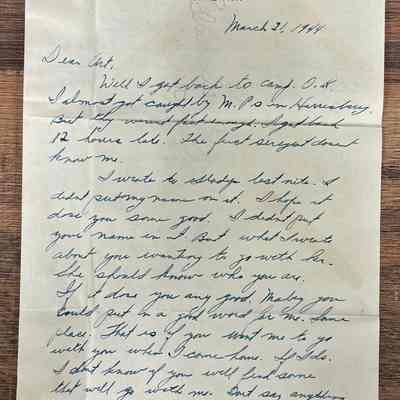 March 21, 1944
Dear Art,
Well I got back to camp. O.K.
I almost got caught by M.P.s in Harrisburg.
But they I got back
12 hours late. The first sergeant doesnt
know me.
I wrote to Gladys last nite. I
didnt put my name on it. I hope it
does you some good. I didnt put
your name in it. But what I wrote
about you wanting to go with her.
She should know who you are.
If it does you any good, Maybey you
could put in a good word for me. Some
place. That is if you want me to go
with you when I come home. If I do.
I dont know if you will find some
that will go with me. Dont say anything